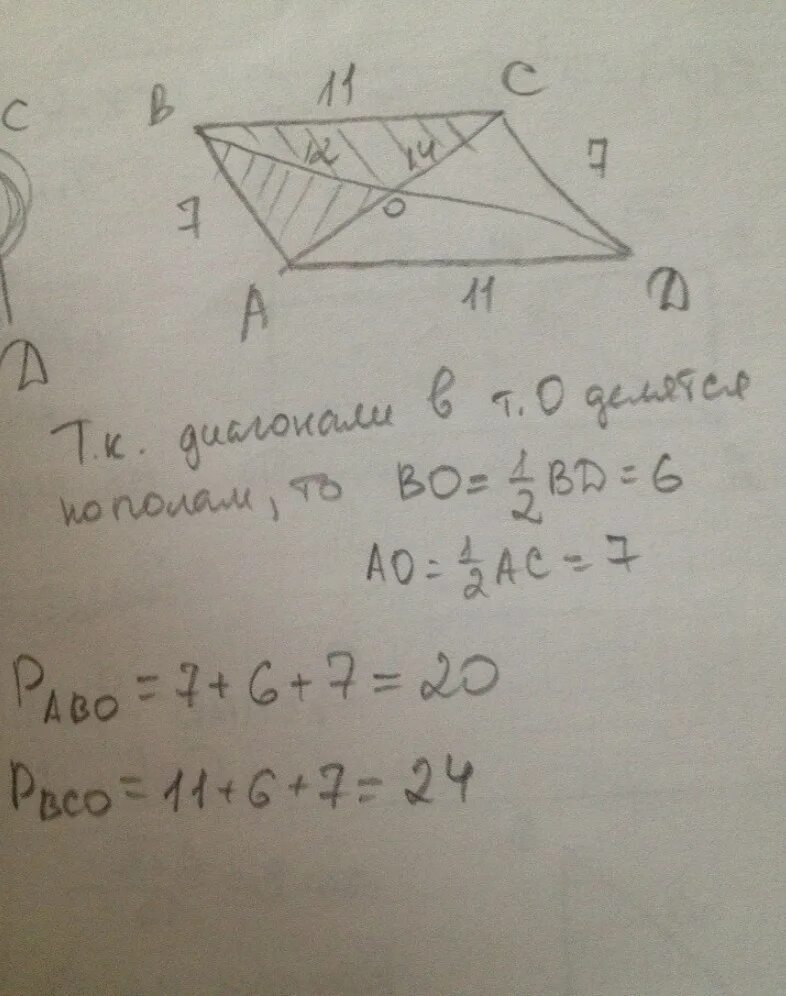 C
Д
B
11
C
12
14
7
7
O
A
11
Д
Т.к. диагонали в т. О делятся
пополам, то BO = 1/2 BД = 6
AO = 1/2 AC = 7
P ABO = 7 + 6 + 7 = 20
P BCO = 11 + 6 + 7 = 24